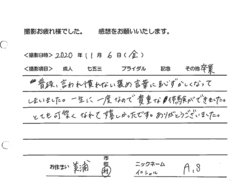 撮影お疲れ様でした。 感想をお願いいたします。
<撮影日時> 2020年 11月 6日(金)
<撮影項目> 成人 七五三 ブライダル 記念 その他 卒業
普段、言われ慣れない褒め言葉にはずかしくなって
しまいました。一生に一度なので貴重な体験ができました。
とても可愛くなれて嬉しかったです。ありがとうございました。
お住まい 美浦 市 町 村
ニックネーム イニシャル A,S